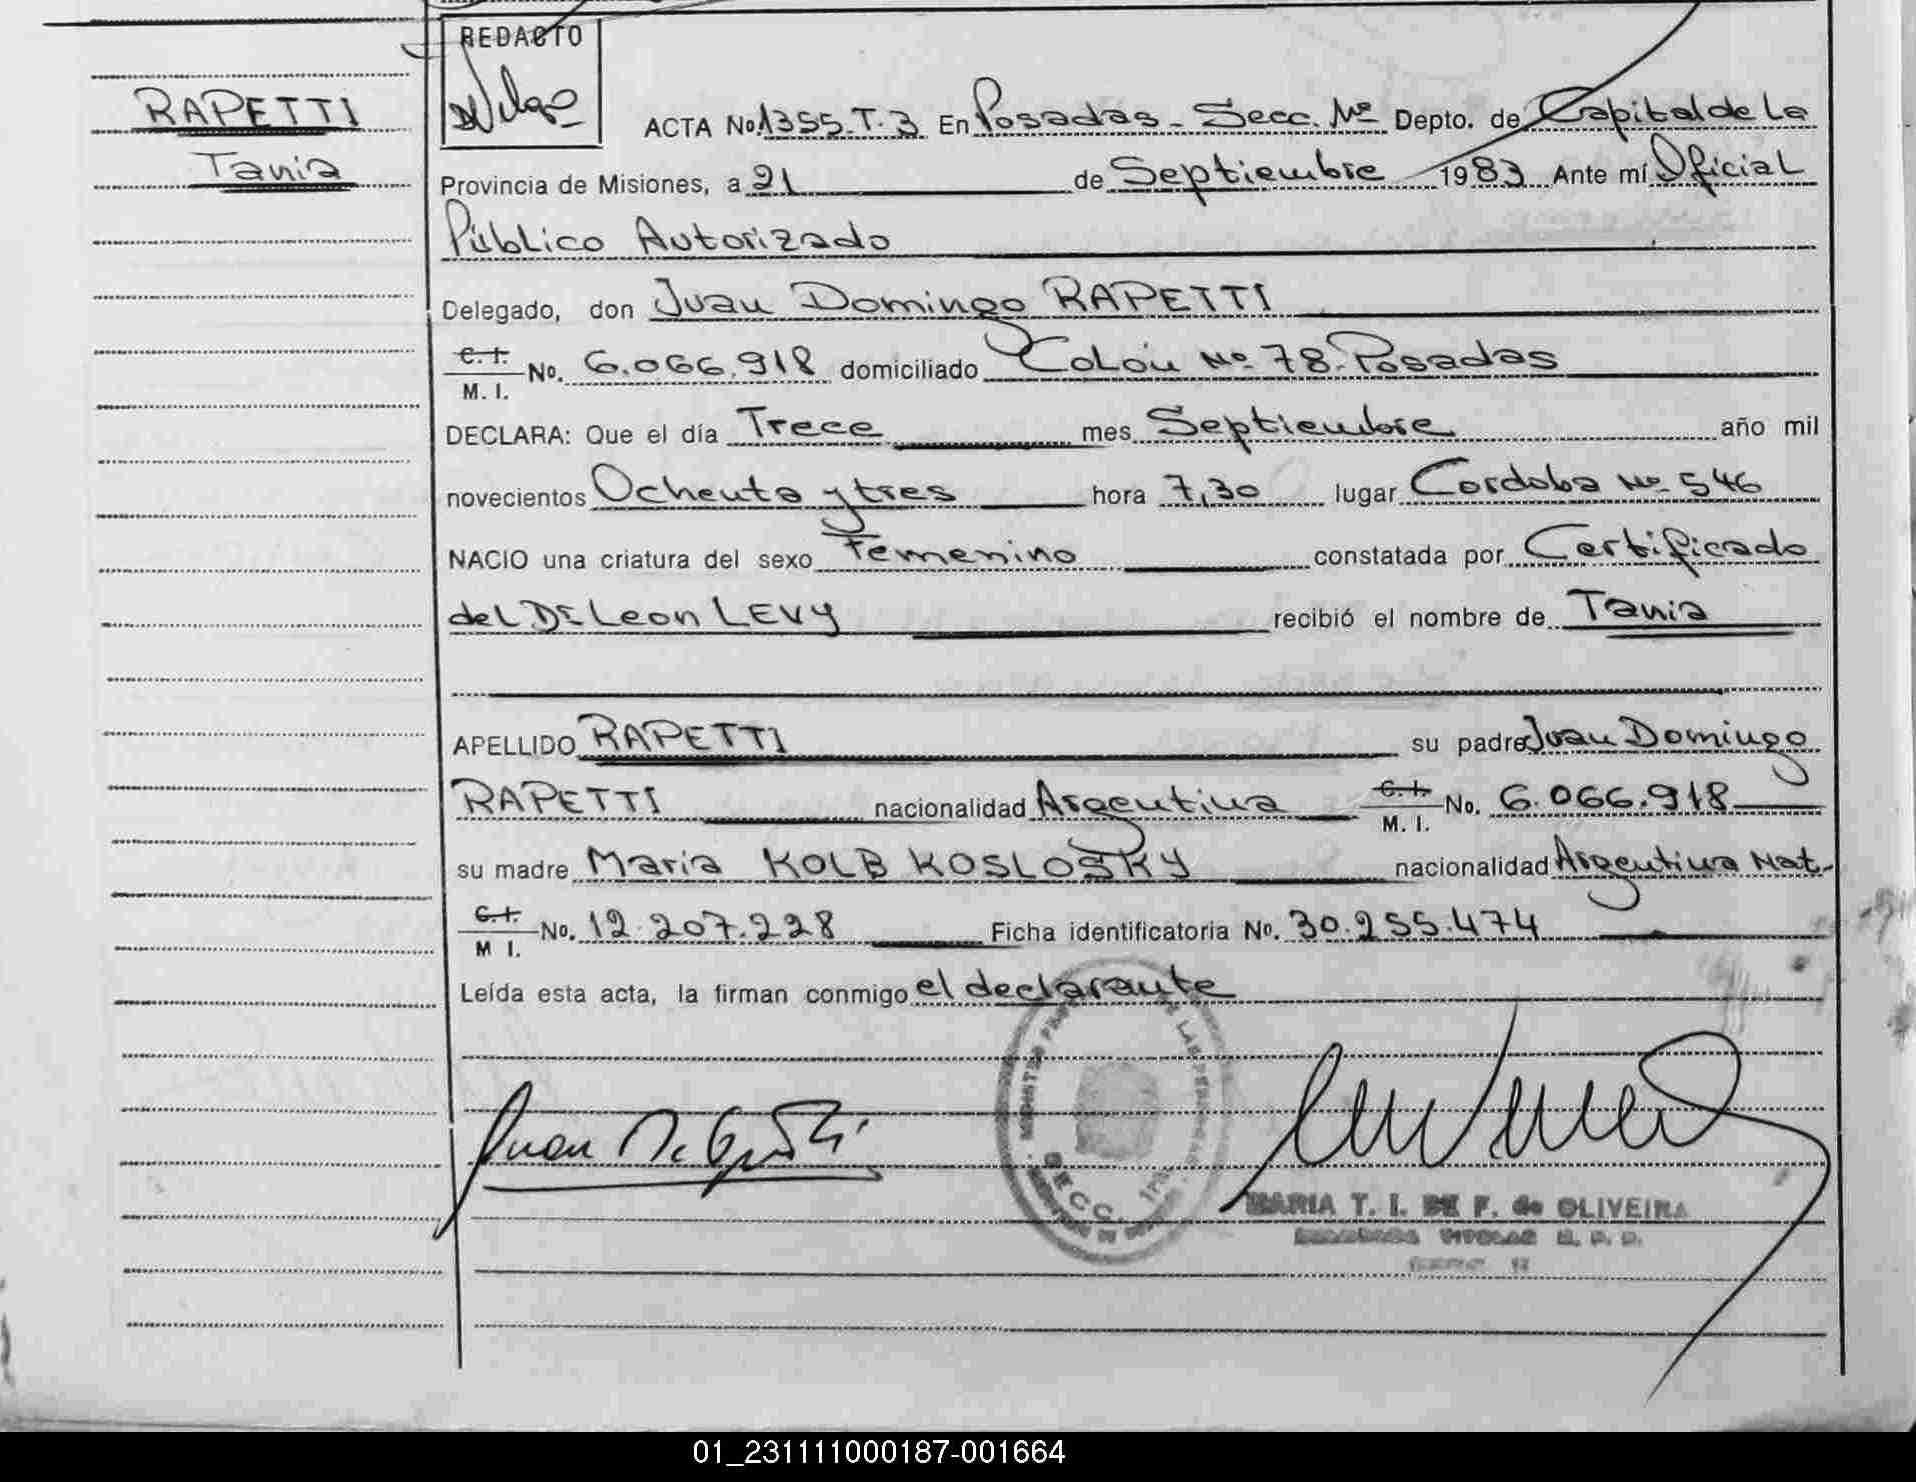 REDACTO
RAPETTI
Tania
ACTA No. 1355. T. 3 En Posadas - Secc. Depto. de Capital de La
Provincia de Misiones, a 21 de Septiembre 1983 Ante mí Oficial
Público Autorizado
Delegado, don Juan Domingo RAPETTI
C. I.
M. I. No. 6.066.918 domiciliado Colón Nº 78. Posadas
DECLARA: Que el día Trece mes Septiembre año mil
novecientos Ochenta y tres hora 7,30 lugar Cordoba Nº 546
NACIO una criatura del sexo Femenino constatada por Certificado
del Dr Leon LEVY recibió el nombre de Tania
APELLIDO RAPETTI su padre Juan Domingo
RAPETTI nacionalidad Argentina C. I. No. 6.066.918
M. I.
su madre Maria KOLB KOSLOSKY nacionalidad Argentina Nat.
C. I. No. 12.207.228 Ficha identificatoria No. 30.255.474
M I.
Leída esta acta, la firman conmigo el declarante
SECC. 1ra
MARIA T. I. DE F. de OLIVEIRA
01_231111000187-001664